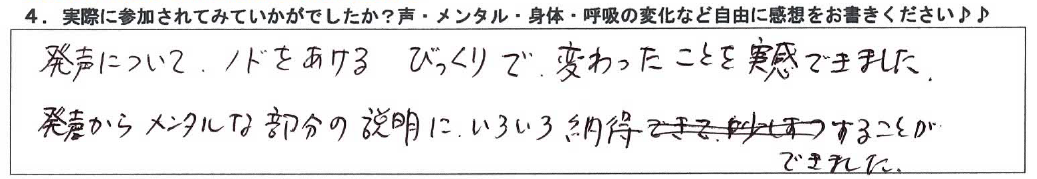 ４．実際に参加されてみていかがでしたか？声・メンタル・身体・呼吸の変化など自由に感想をお書きください♪♪
発声について、ノドをあける びっくりで、変わったことを実感できました。
発声からメンタルな部分の説明に、いろいろ納得することが
できました。